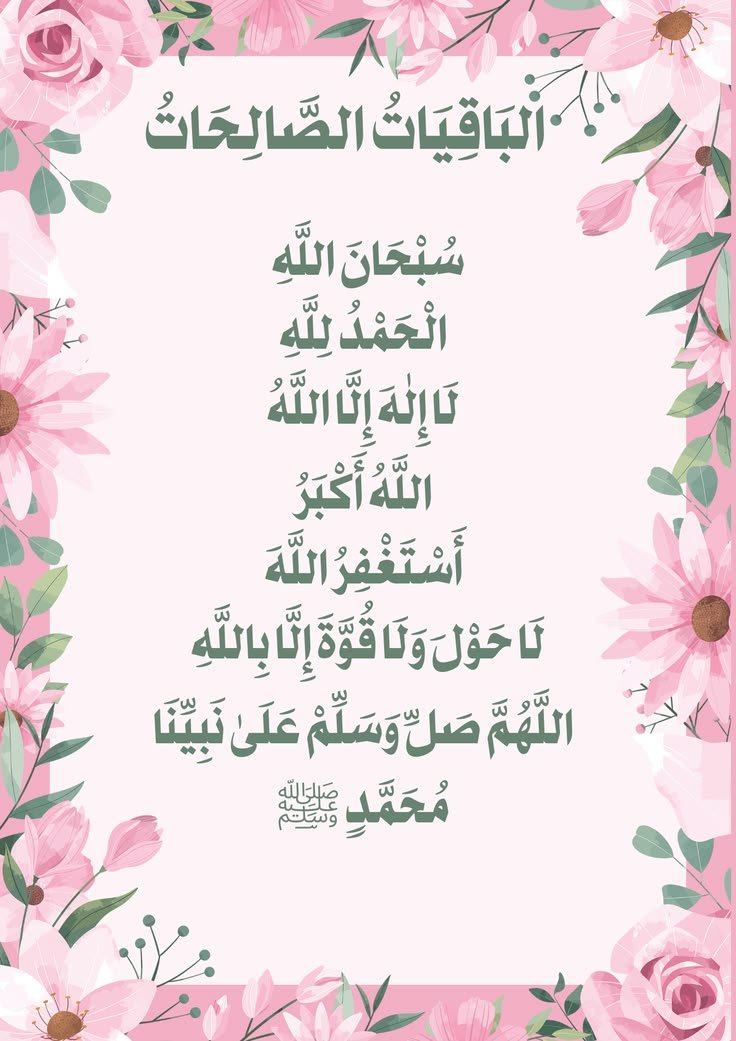 البَاقِيَاتُ الصَّالِحَاتُ
سُبْحَانَ اللَّهِ
الْحَمْدُ لِلَّهِ
لَا إِلٰهَ إِلَّا اللَّهُ
اللَّهُ أَكْبَرُ
أَسْتَغْفِرُ اللَّهَ
لَا حَوْلَ وَلَا قُوَّةَ إِلَّا بِاللَّهِ
اللَّهُمَّ صَلِّ وَسَلِّمْ عَلَىٰ نَبِيِّنَا
مُحَمَّدٍ ﷺ